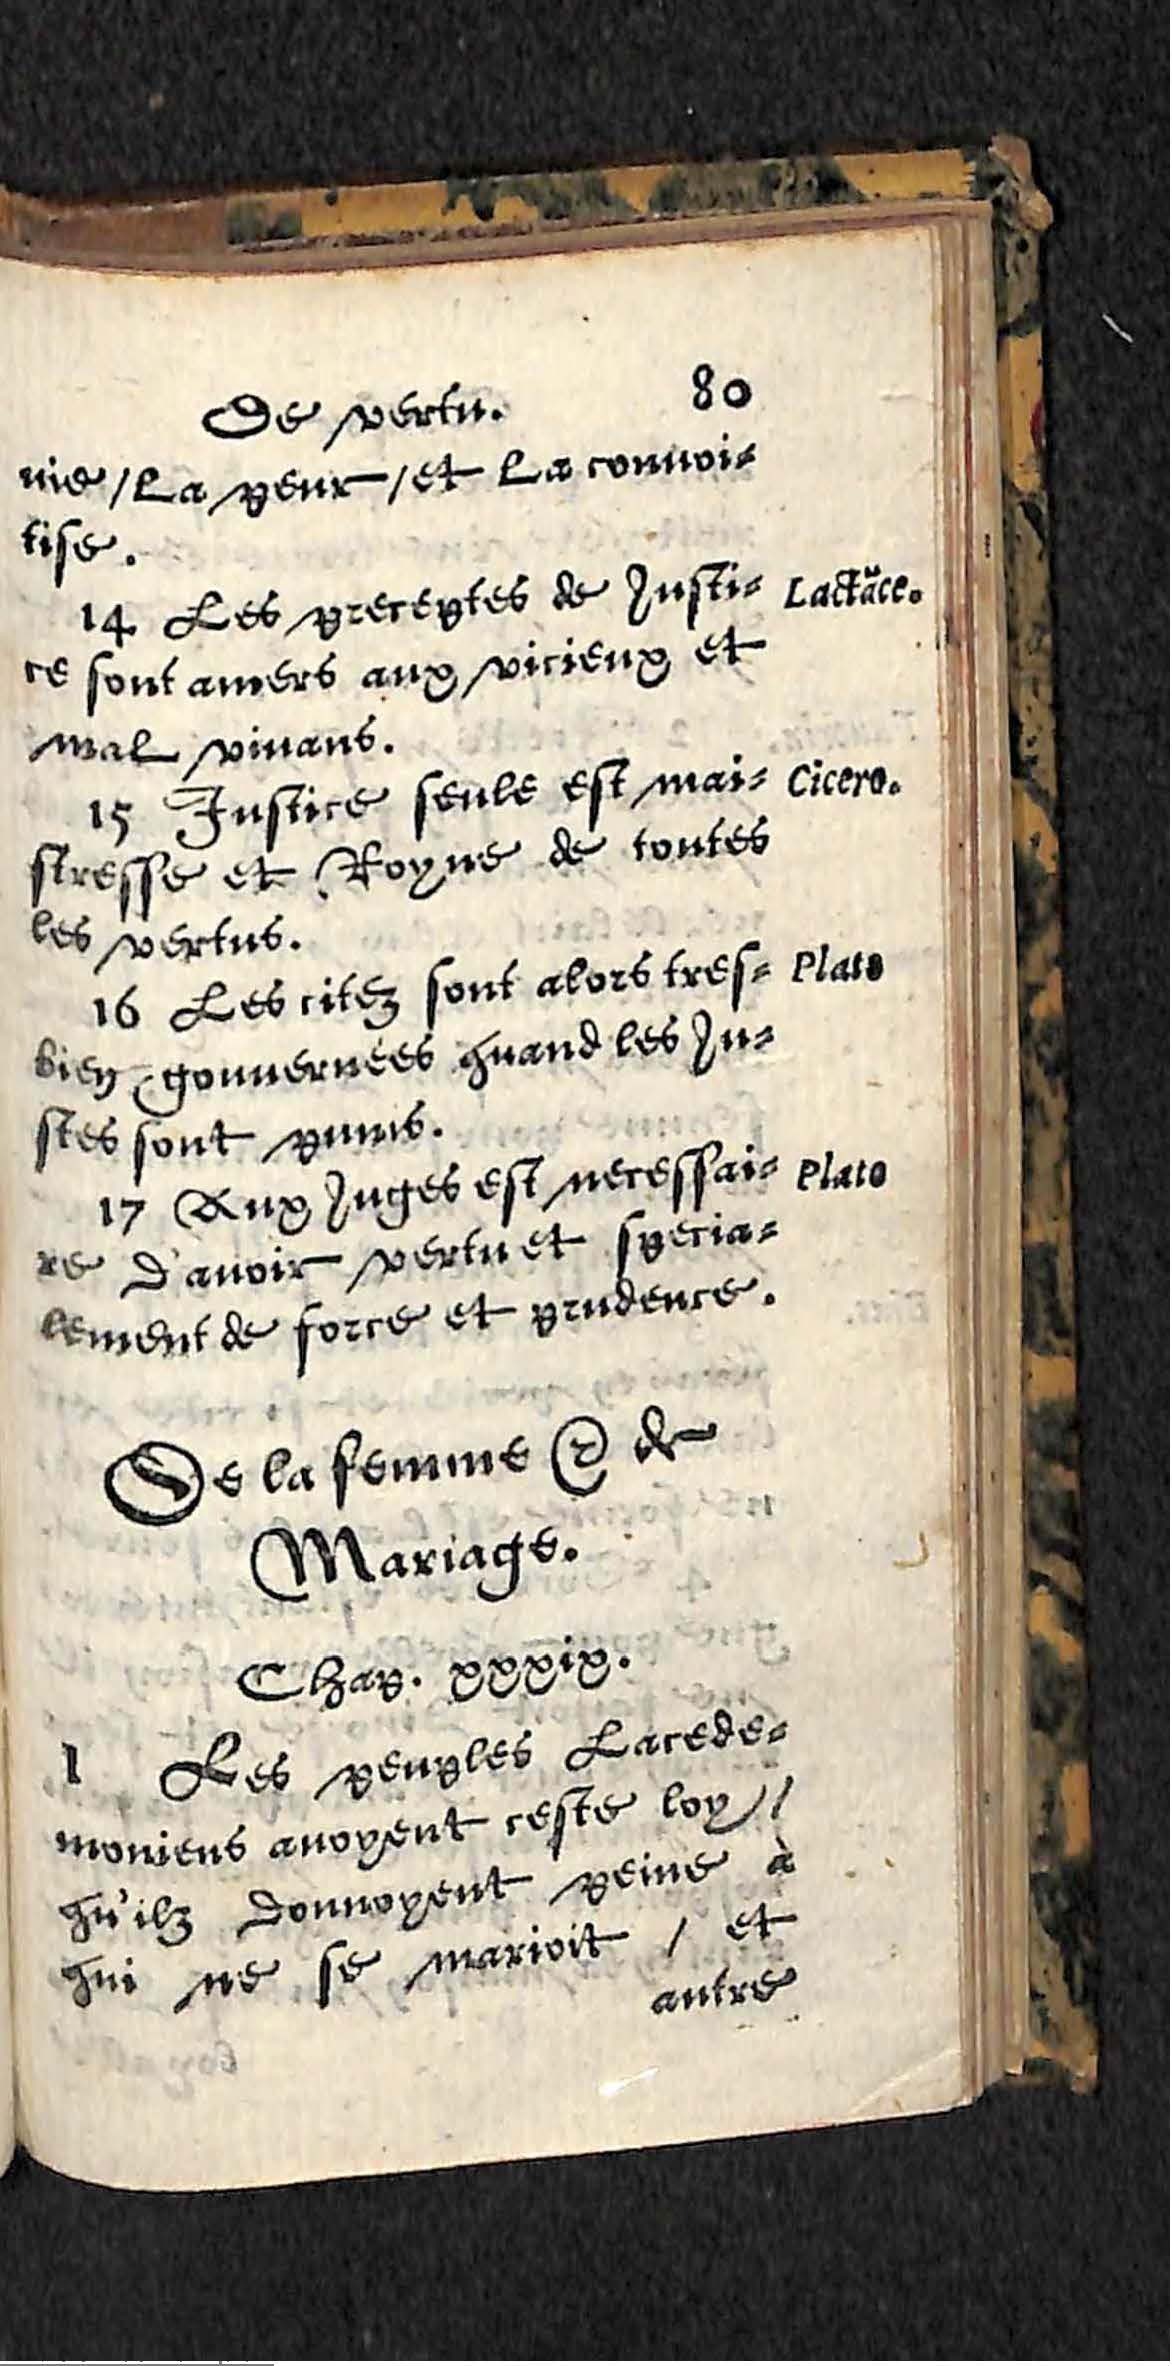 De vertu. 80
uie / La peur / et La conuoi-
tise.
14 Les preceptes de Justi- Lactāce.
ce sont amers aux vicieux et
mal viuans.
15 Justice seule est mai- Cicero.
stresse et Royne de toutes
les vertus.
16 Les citez sont alors tres- Plato
bien gouuernées quand les Ju-
stes sont punis.
17 Aux Juges est necessai- Plato
re d'auoir vertu et specia-
lement de force et prudence.
De la femme & de
Mariage.
Chap. xxxix.
1 Les peuples Lacede-
moniens auoyent ceste loy /
qu'ilz donnoyent peine à
qui ne se marioit / et
autre